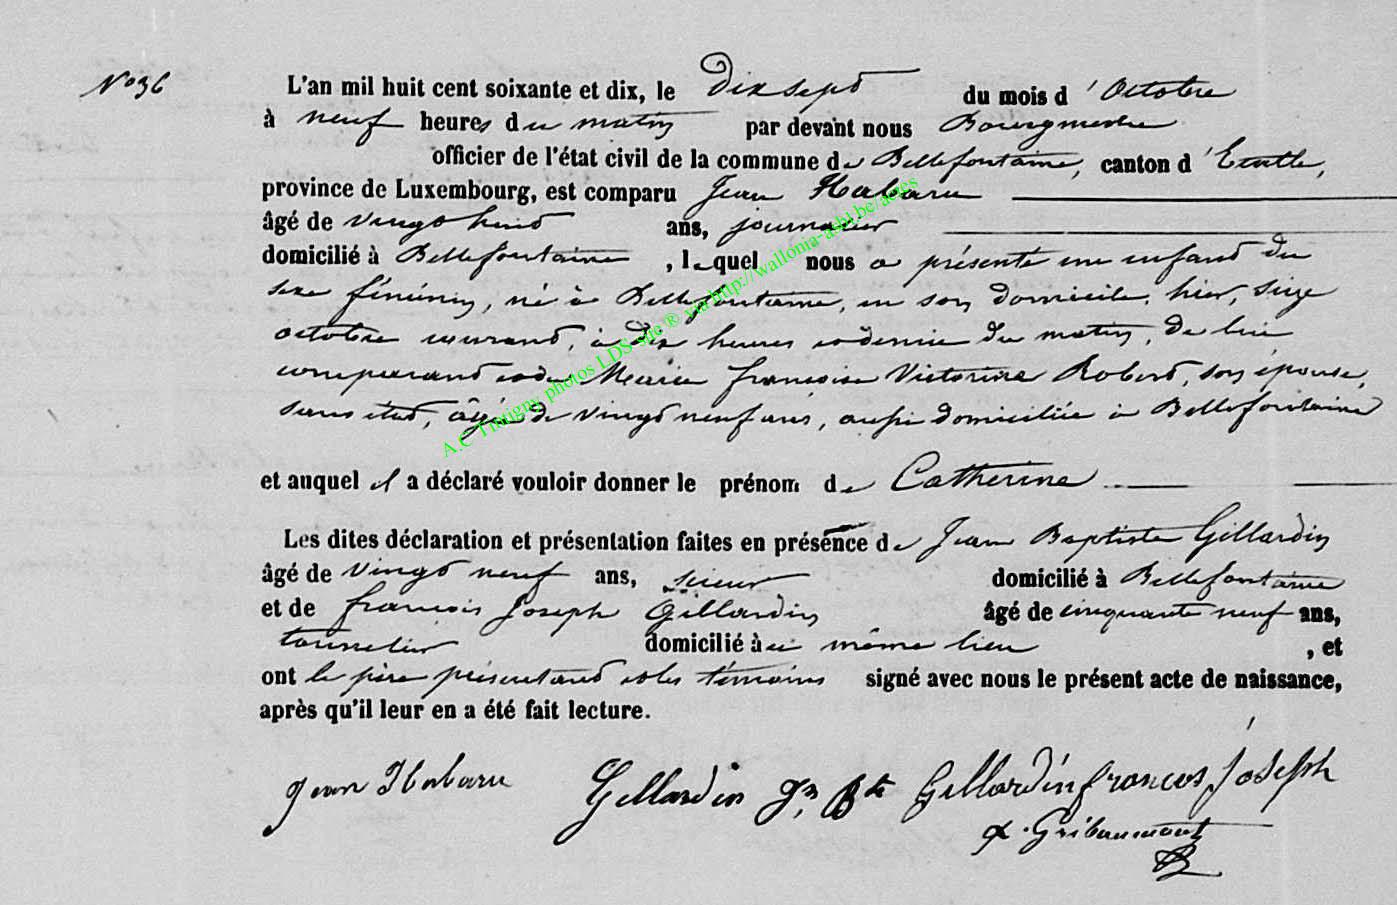 N° 36
L'an mil huit cent soixante et dix, le dix sept du mois d'Octobre
à neuf heures du matin par devant nous Bourgmestre
officier de l'état civil de la commune de Bellefontaine, canton d'Etalle,
province de Luxembourg, est comparu Jean Habaru
âgé de vingt huit ans, journalier
domicilié à Bellefontaine, lequel nous a présenté un enfant du
sexe féminin, né à Bellefontaine, en son domicile, hier, seize
octobre courant, à dix heures et demie du matin, de lui
comparant et de Marie Françoise Victorine Robert, son épouse,
sans état, âgée de vingt neuf ans, aussi domiciliée à Bellefontaine
et auquel il a déclaré vouloir donner le prénom de Catherine
Les dites déclaration et présentation faites en présence de Jean Baptiste Gillardin
âgé de vingt neuf ans, scieur domicilié à Bellefontaine
et de François Joseph Gillardin âgé de cinquante neuf ans,
tonnelier domicilié à u même lieu, et
ont le père présentant et les témoins signé avec nous le présent acte de naissance,
après qu'il leur en a été fait lecture.
Jean Habaru Gillardin Jn Bte Gillardin francois Joseph
Gribaumont
A.C Tintigny photos LDS-site ® via http://wallonia-asbl.be/actes